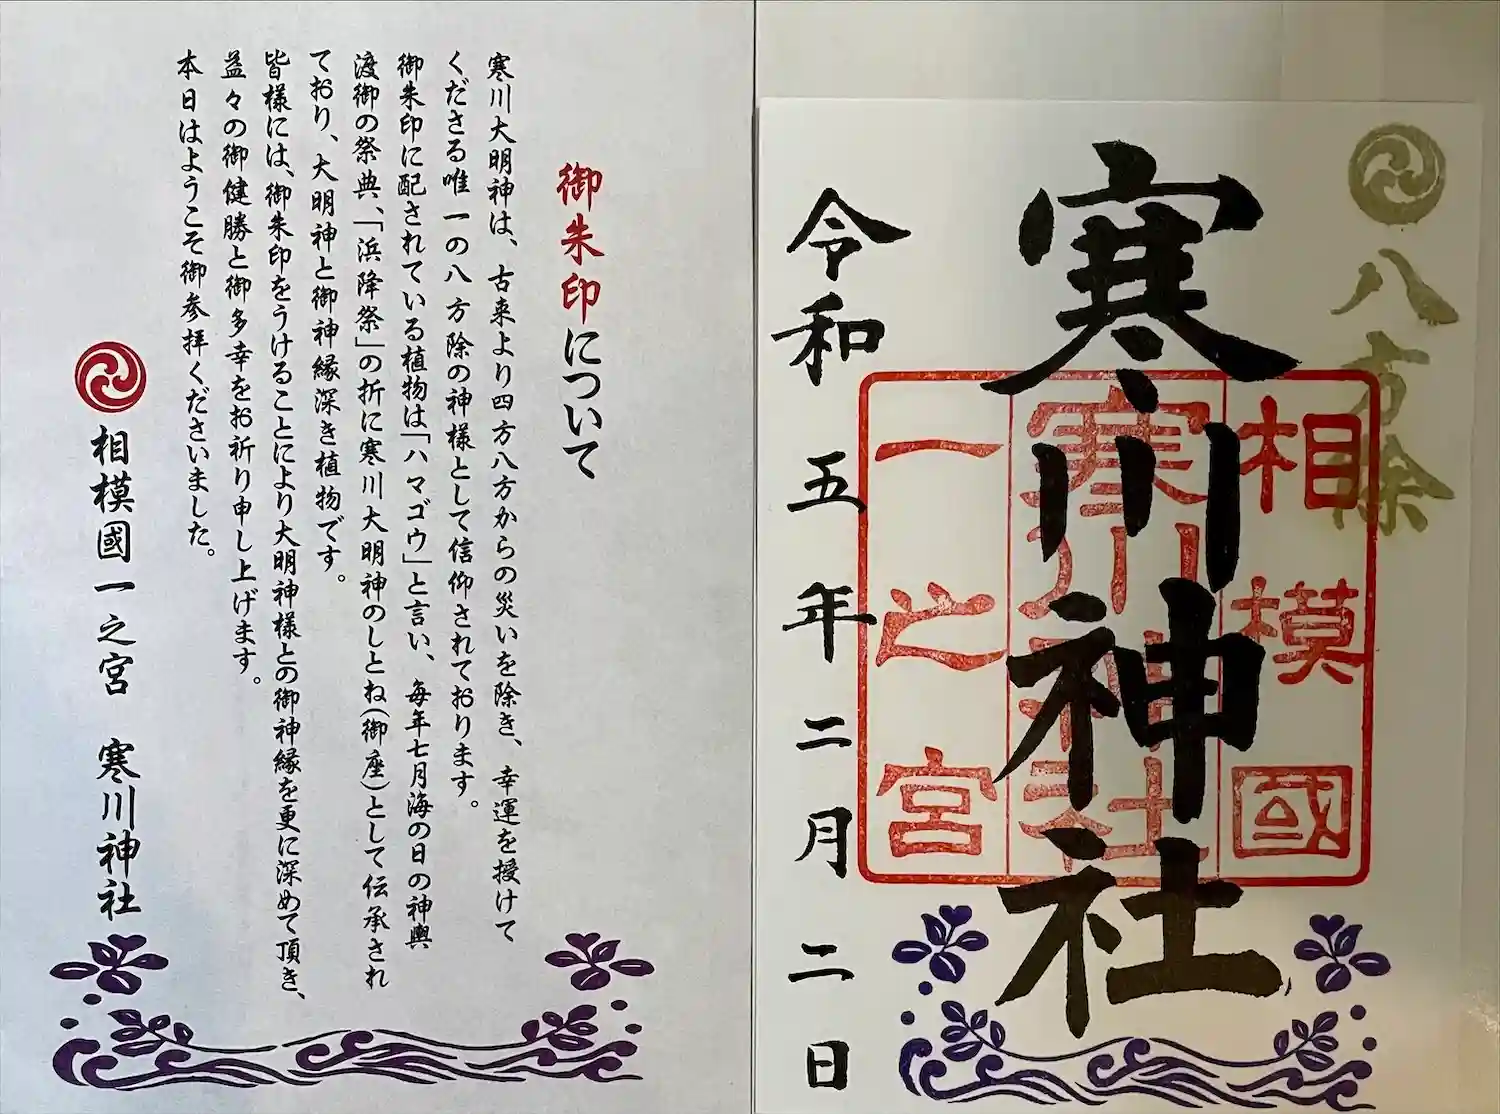 御朱印について
寒川大明神は、古来より四方八方からの災いを除き、幸運を授けて
くださる唯一の八方除の神様として信仰されております。
御朱印に配されている植物は「ハマゴウ」と言い、毎年七月海の日の神輿
渡御の祭典、「浜降祭」の折に寒川大明神のしとね(御座)として伝承され
ており、大明神と御神縁深き植物です。
皆様には、御朱印をうけることにより大明神様との御神縁を更に深めて頂き、
益々の御健勝と御多幸をお祈り申し上げます。
本日はようこそ御参拝くださいました。
相模國一之宮 寒川神社
八方除
寒川神社
相模國
寒川神社
一之宮
令和五年二月二日